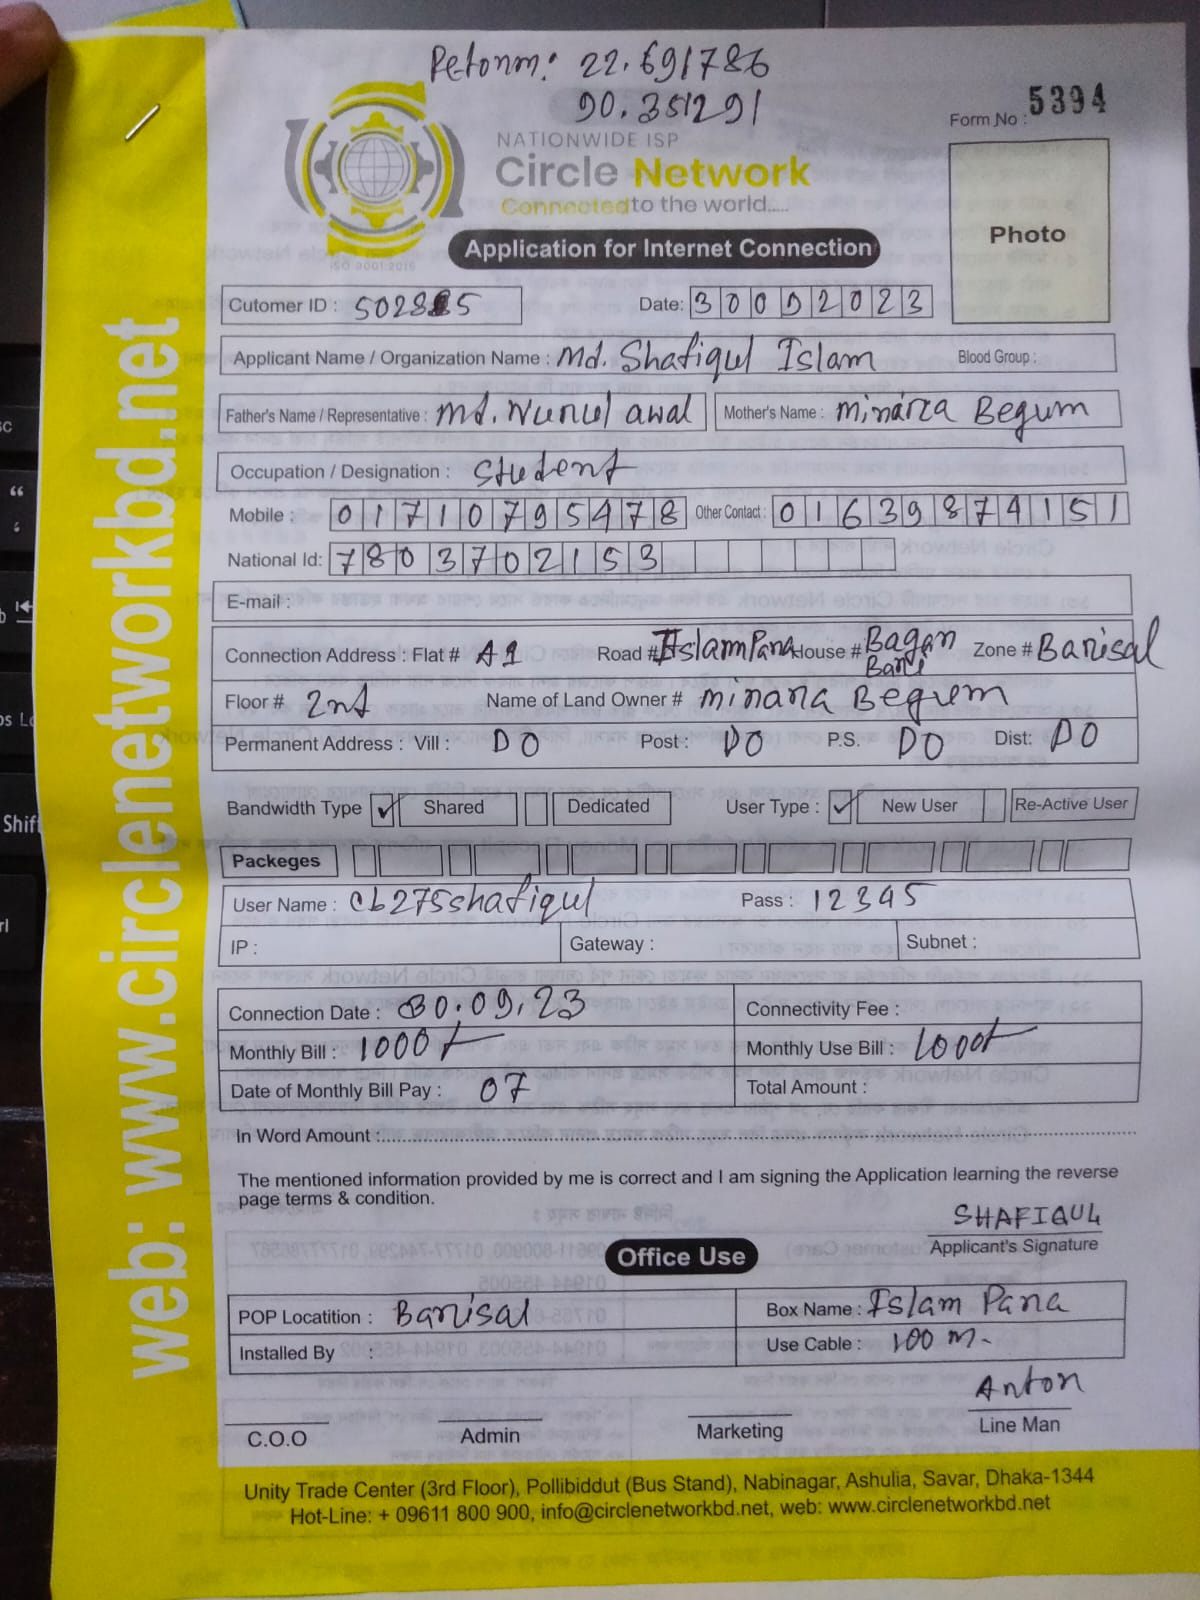 Petonm: 22.691786
90.351291
Form No : 5394
NATIONWIDE ISP
Circle Network
Connected to the world.....
ISO 9001:2015
Photo
Application for Internet Connection
Cutomer ID : 502885 Date: 30092023
Applicant Name / Organization Name : Md. Shafiqul Islam Blood Group :
Father's Name / Representative : Md. Nurul awal Mother's Name : Minara Begum
Occupation / Designation : Student
Mobile : 01710795478 Other Contact : 01639874151
National Id: 7803702153
E-mail :
Connection Address : Flat # A1 Road # IslamPara House # Bagan Bari Zone # Barisal
Floor # 2nd Name of Land Owner # Minara Begum
Permanent Address : Vill : DO Post : DO P.S. DO Dist: DO
Bandwidth Type ✓ Shared Dedicated User Type : ✓ New User Re-Active User
Packeges
User Name : cb275shafiqul Pass : 12345
IP : Gateway : Subnet :
Connection Date : 30.09.23 Connectivity Fee :
Monthly Bill : 1000/- Monthly Use Bill : 1000/-
Date of Monthly Bill Pay : 07 Total Amount :
In Word Amount :
The mentioned information provided by me is correct and I am signing the Application learning the reverse
page terms & condition.
SHAFIQUL
Applicant's Signature
Office Use
POP Locatition : Barisal Box Name : Islam Para
Installed By : Use Cable : 100 m-
Anton
C.O.O Admin Marketing Line Man
Unity Trade Center (3rd Floor), Pollibiddut (Bus Stand), Nabinagar, Ashulia, Savar, Dhaka-1344
Hot-Line: + 09611 800 900, info@circlenetworkbd.net, web: www.circlenetworkbd.net
web: www.circlenetworkbd.net